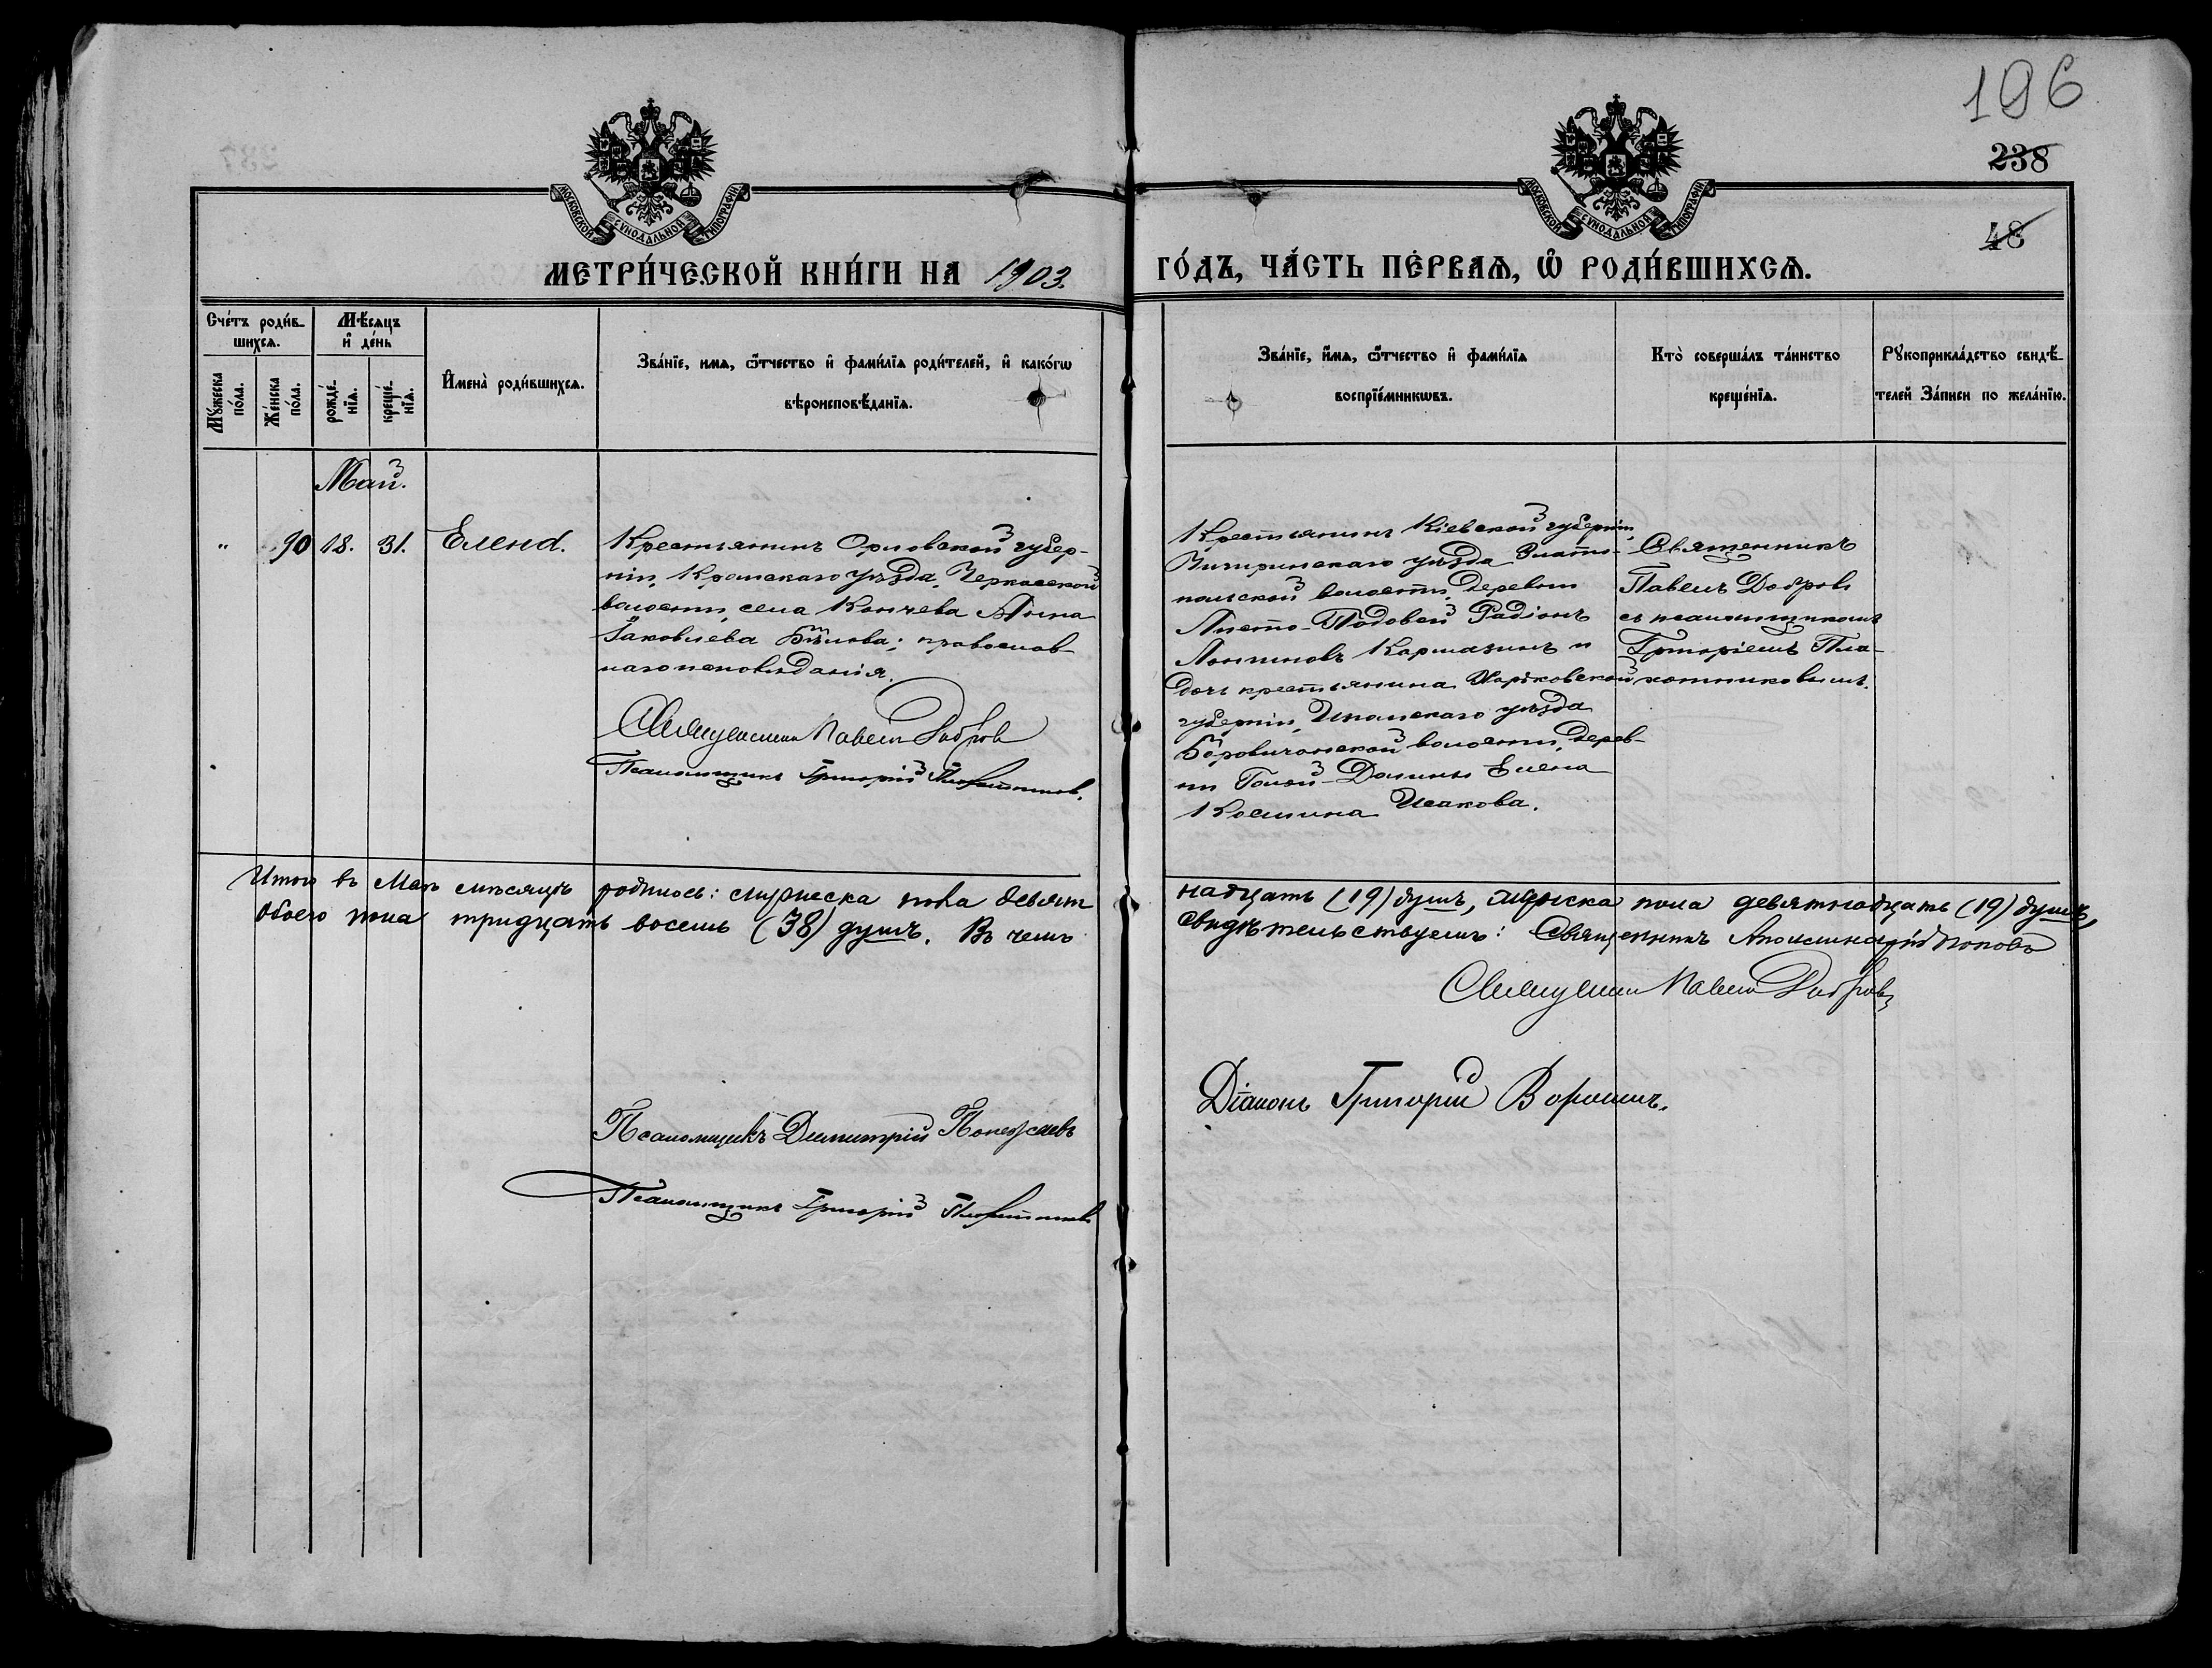 196
238
48
МОСКОВСКОЙ СѴНОДАЛЬНОЙ ТИПОГРАФІИ
МОСКОВСКОЙ СѴНОДАЛЬНОЙ ТИПОГРАФІИ
МЕТРИ́ЧЕСКОЙ КНИ́ГИ НА 1903.
ГО́ДЪ, ЧА́СТЬ ПЕ́РВАѦ, Ѡ РОДИ́ВШИХСѦ.
Сче́тъ роди́в-
шихсѧ.
Мѣ́сѧцъ
и҆ де́нь
Мꙋ́жеска
по́ла.
Же́нска
по́ла.
рожде́-
нїѧ.
креще́-
нїѧ.
И҆мена̀ роди́вшихсѧ.
Зва́нїе, и҆́мѧ, ѻ҆́тчество и҆ фами́лїѧ роди́телей, и҆ како́гѡ
вѣроисповѣ́данїѧ.
Зва́нїе, и҆́мѧ, ѻ҆́тчество и҆ фами́лїѧ
воспрїе́мникѡвъ.
Кто̀ соверша́лъ та́инство
креще́нїѧ.
Рꙋкоприкла́дство свидѣ́-
телей за́писи по жела́нїю.
Май.
" 90 18. 31. Елена.
Крестьянинъ Орловской губер-
ніи, Кромскаго уѣзда, Черкасской
волости, села Кончева Анна
Іаковлева Бѣлова; православ-
наго исповѣданія.
Священникъ Павелъ Добровъ
Псаломщикъ Григорій Плохотниковъ.
Крестьянинъ Кіевской губерніи,
Чигиринскаго уѣзда Злато-
польской волости, деревни
Листо-Падовой Радіонъ
Логиновъ Кармазинъ и
дочь крестьянина Харьковской
губерніи, Изюмскаго уѣзда
волости, дерев-
ни Голой-Долины Елена
Космина Исакова.
Священникъ
Павелъ Добровъ
съ псаломщикомъ
Григоріемъ Пло-
хотниковымъ.
Итого въ Маѣ мѣсяцѣ родилось: мужеска пола девят
надцать (19) душъ, женска пола девятнадцать (19) душъ,
обоего пола тридцать восемь (38) душъ. Въ чемъ
свидѣтельствуемъ: Священникъ Аполлинарій Поповъ
Священникъ Павелъ Добровъ
Діаконъ Григорій
Псаломщикъ Димитрій
Псаломщикъ Григорій Плохотниковъ